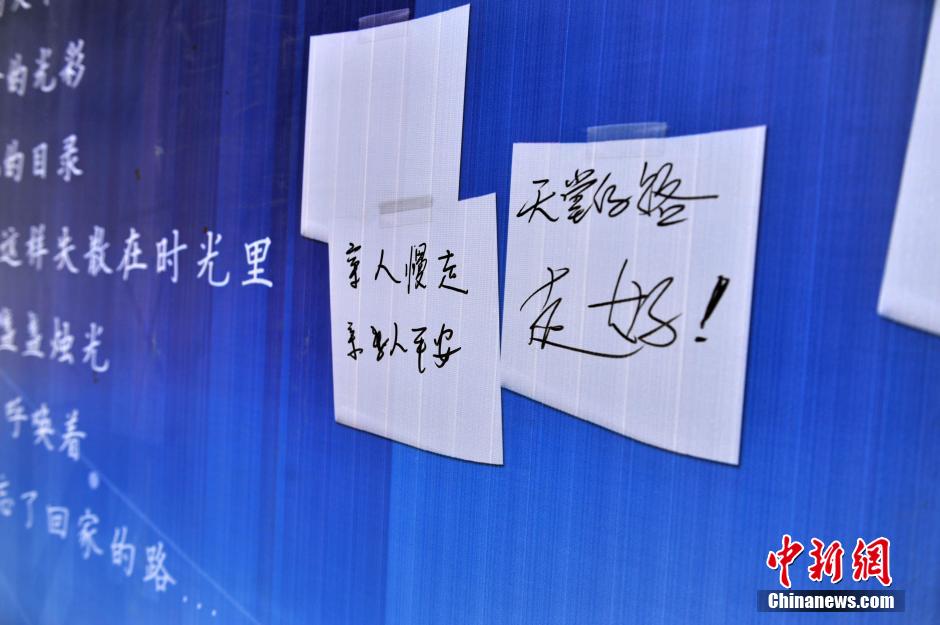 的光彩
的目录
这样失散在时光里
盏盏烛光
呼唤着
忘了回家的路...
亲人慢走
亲人平安
天堂的路
走好!
中新网
Chinanews.com